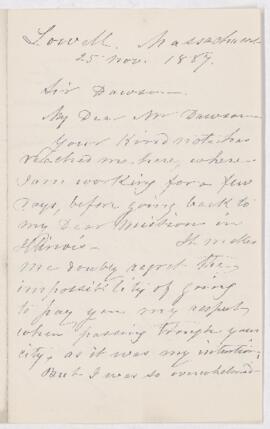 Lowell, Massachusetts
25 Nov. 1887.
Sir Dawson
My Dear Mr Dawson
Your Kind note has
reached me here, where
I am working for a few
days, before going back to
my Dear Mission in
Illinois - It makes
me doubly regret the
impossibility of going
to pay you my respect
when passing trough your
city, as it was my intention,
But I was so overwhelmed